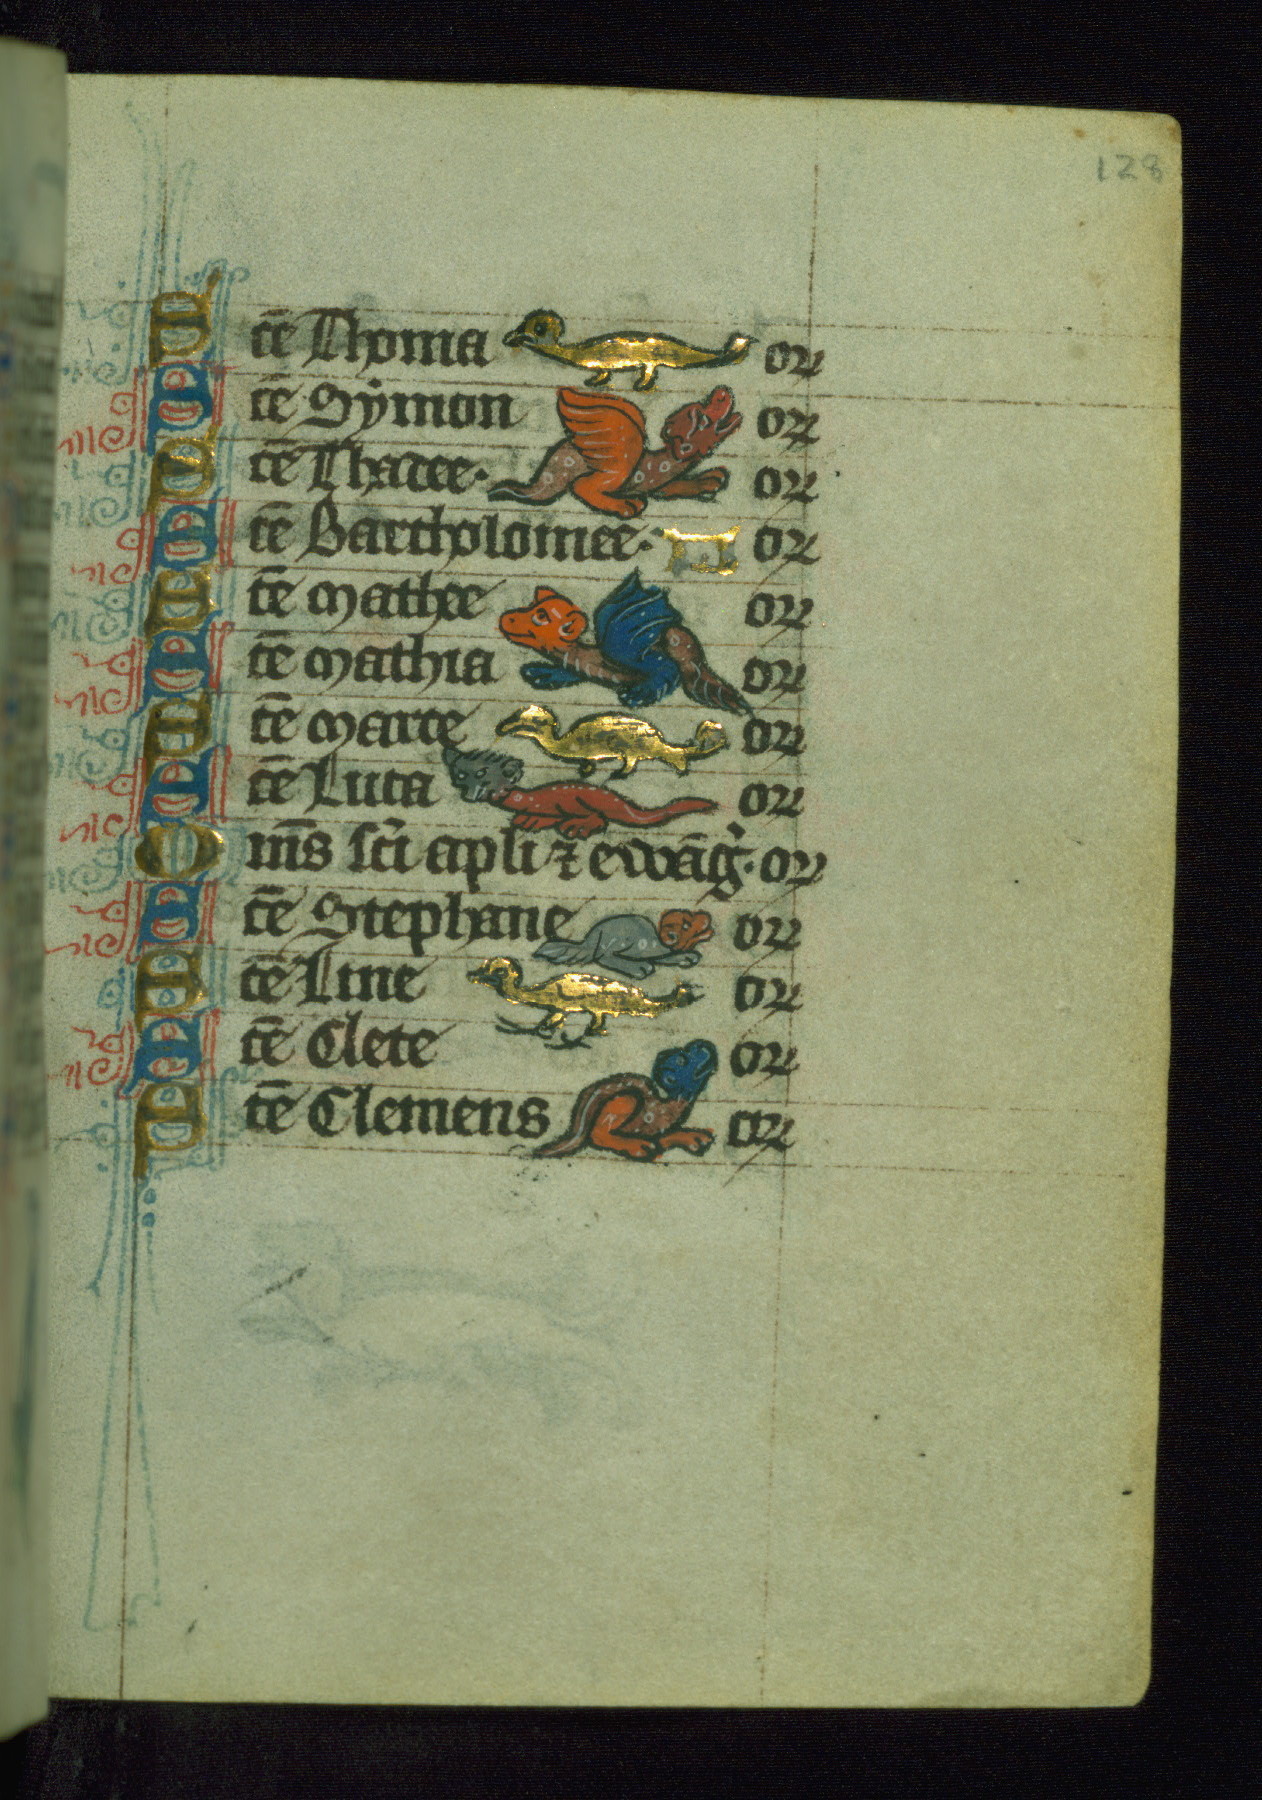 128
Scē Thoma or
Scē Symon or
Scē Thadee· or
Scē Bartholomee· or
Scē mathee or
Scē mathia or
Scē marce or
Scē Luca or
Om̄s sc̄i apl̄i ⁊ ewāg̃· or
Scē Stephane or
Scē Line or
Scē Clete or
Scē Clemens or